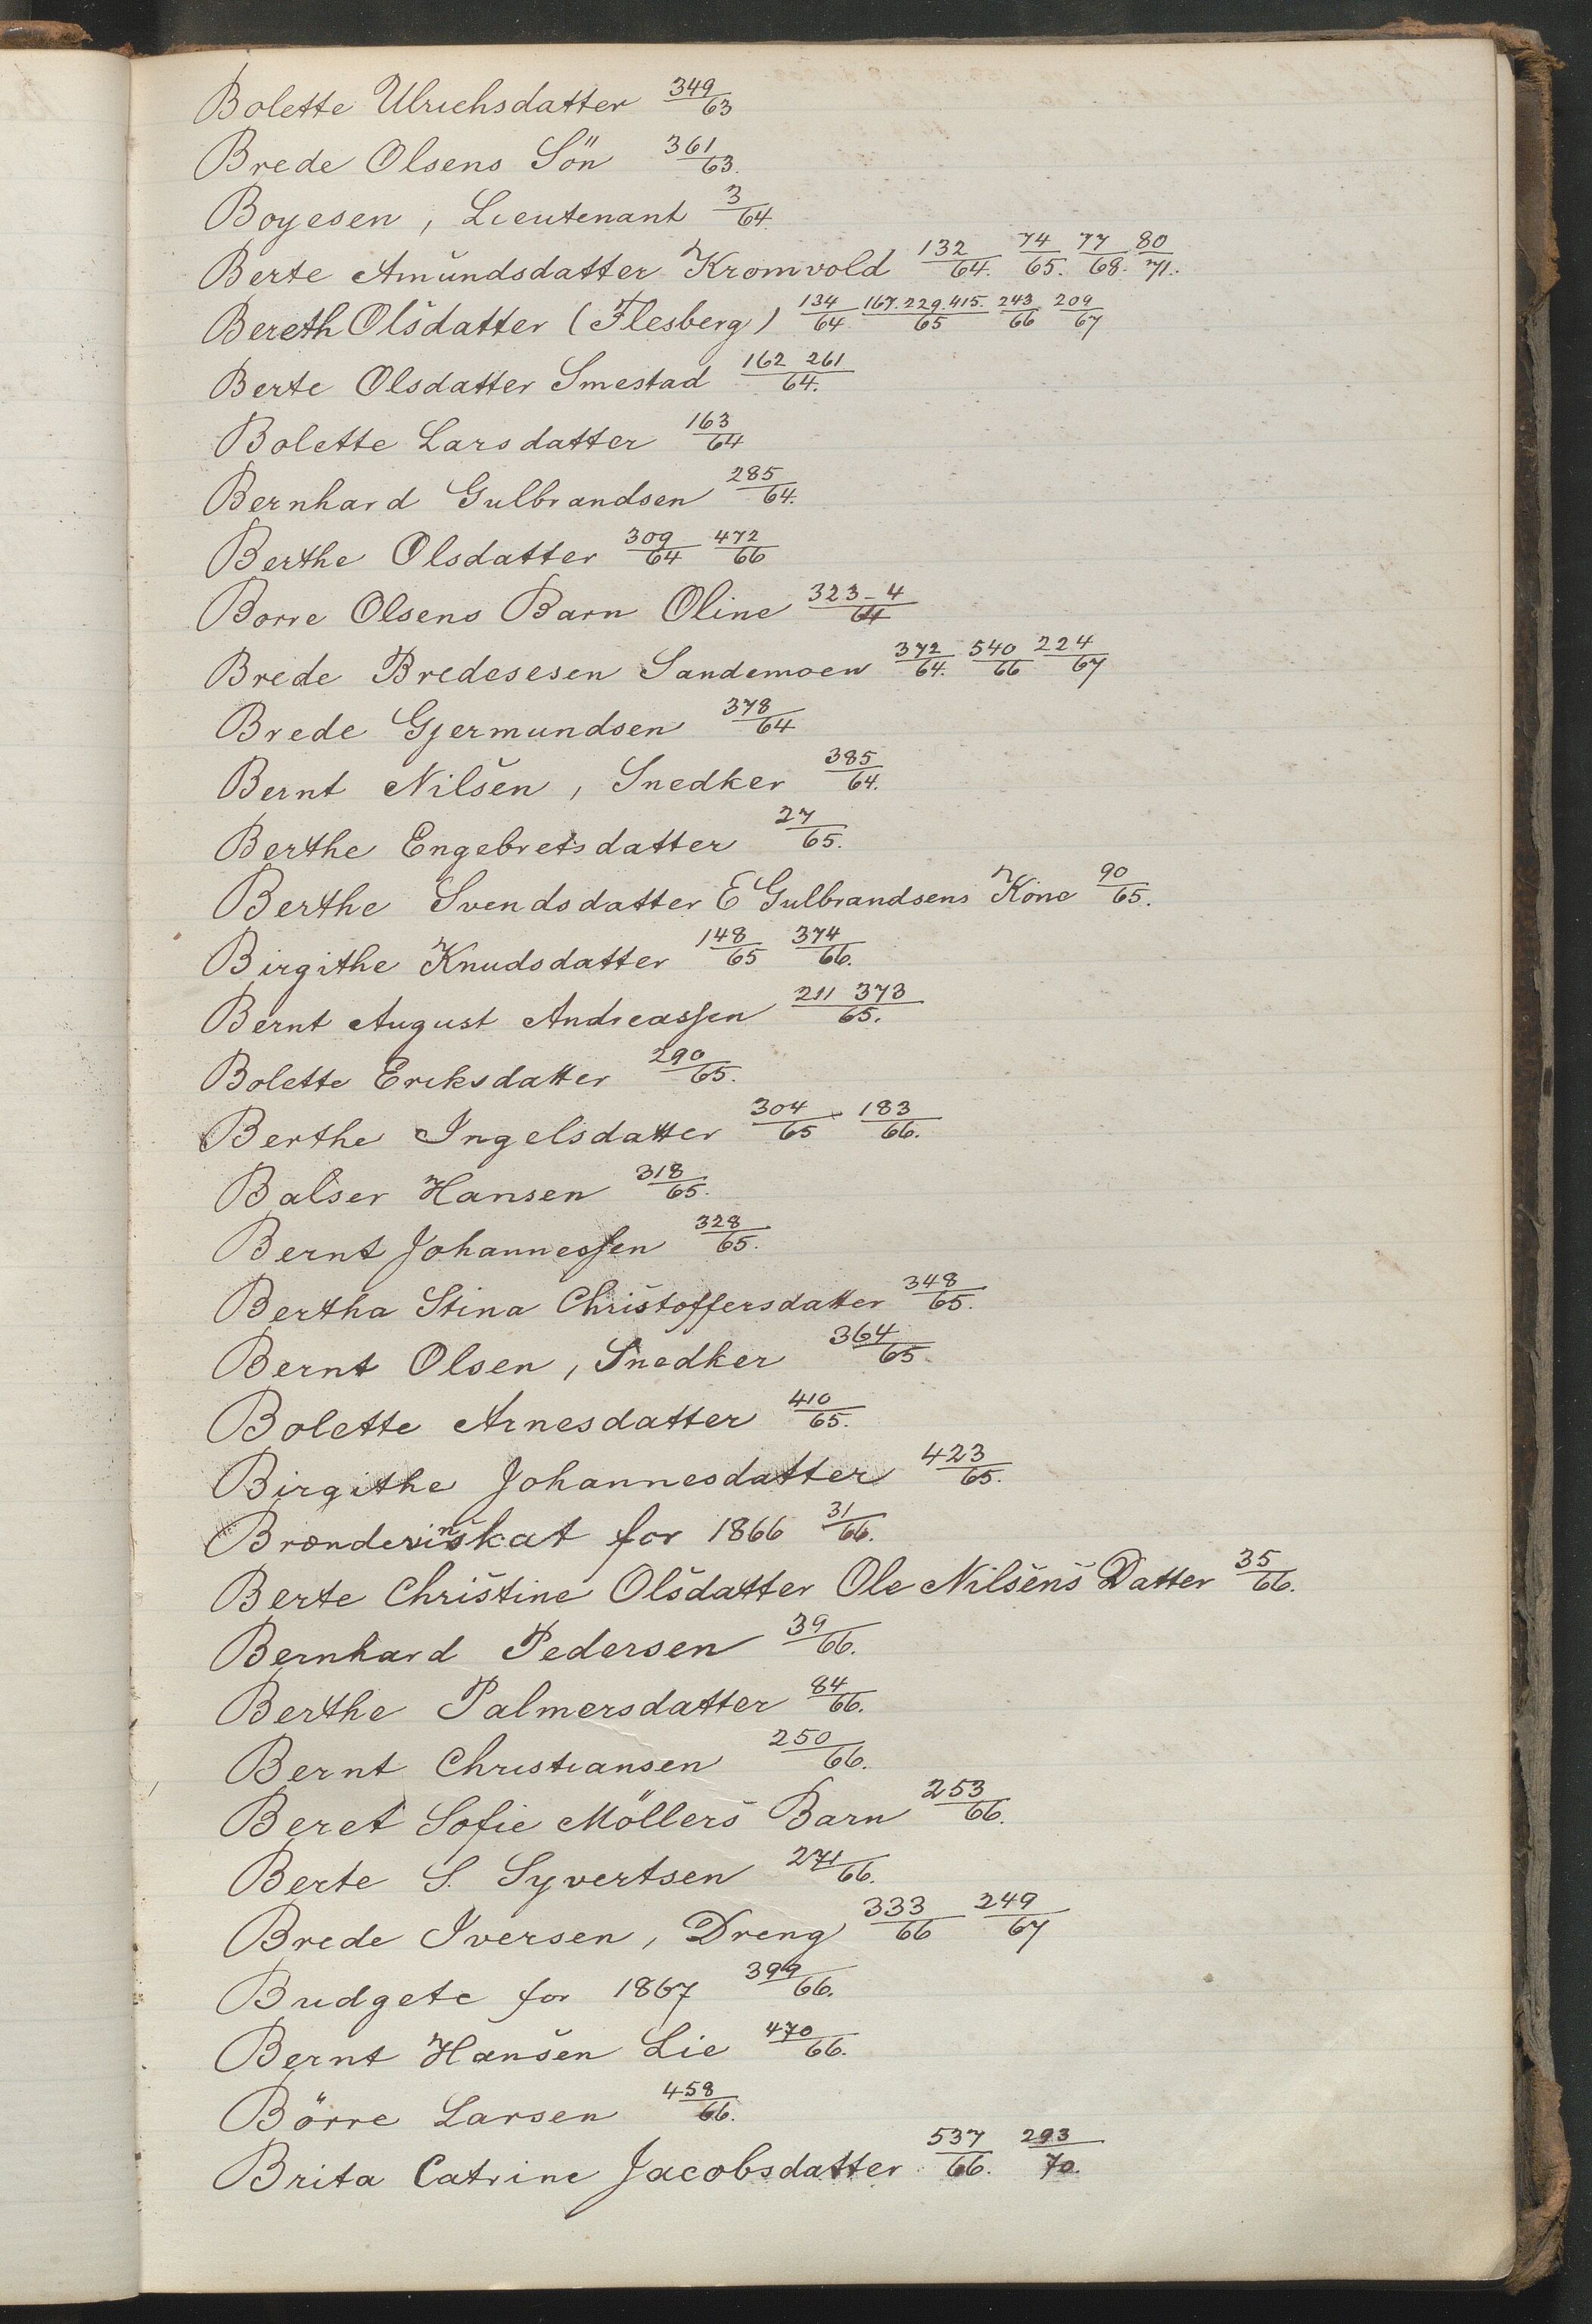 Bolette Ulrichsdatter 349/63
Brede Olsens Sön 361/63.
Boyesen, Lieutenant 3/64.
Berte Amundsdatter Kromvold 132/64. 74/65. 77/68. 80/71.
Bereth Olsdatter (Flesberg) 134/64 167.229.415./65 243/66 209/67
Berte Olsdatter Smestad 162 261/64.
Bolette Larsdatter 163/64
Bernhard Gulbrandsen 285/64.
Berthe Olsdatter 309/64 472/66
Borre Olsens Barn Oline 323-4/64
Brede Bredesesen Sandemoen 372/64. 540/66 224/67
Brede Gjermundsen 378/64
Bernt Nilsen, Snedker 385/64.
Berthe Engebretsdatter 27/65.
Berthe Svendsdatter E Gulbrandsens Kone 90/65.
Birgithe Knudsdatter 148/65 374/66.
Bernt August Andreassen 211 373/65.
Bolette Eriksdatter 290/65.
Berthe Ingelsdatter 304/65 183/66.
Balser Hansen 318/65.
Bernt Johannessen 328/65.
Bertha Stina Christoffersdatter 348/65.
Bernt Olsen, Snedker 364/65.
Bolette Arnesdatter 410/65.
Birgithe Johannesdatter 423/65.
for 1866 31/66.
Berte Christine Olsdatter Ole Nilsens Datter 35/66.
Bernhard Pedersen 39/66.
Berthe Palmersdatter 84/66.
Bernt Christiansen 250/66.
Beret Sofie Möllers Barn 253/66.
Berte S. Syvertsen 271/66.
Brede Iversen, Dreng 333/66 249/67
Budgete for 1867 399/66.
Bernt Hansen Lie 470/66.
Börre Larsen 458/66.
Brita Catrine Jacobsdatter 537/66. 293/70.